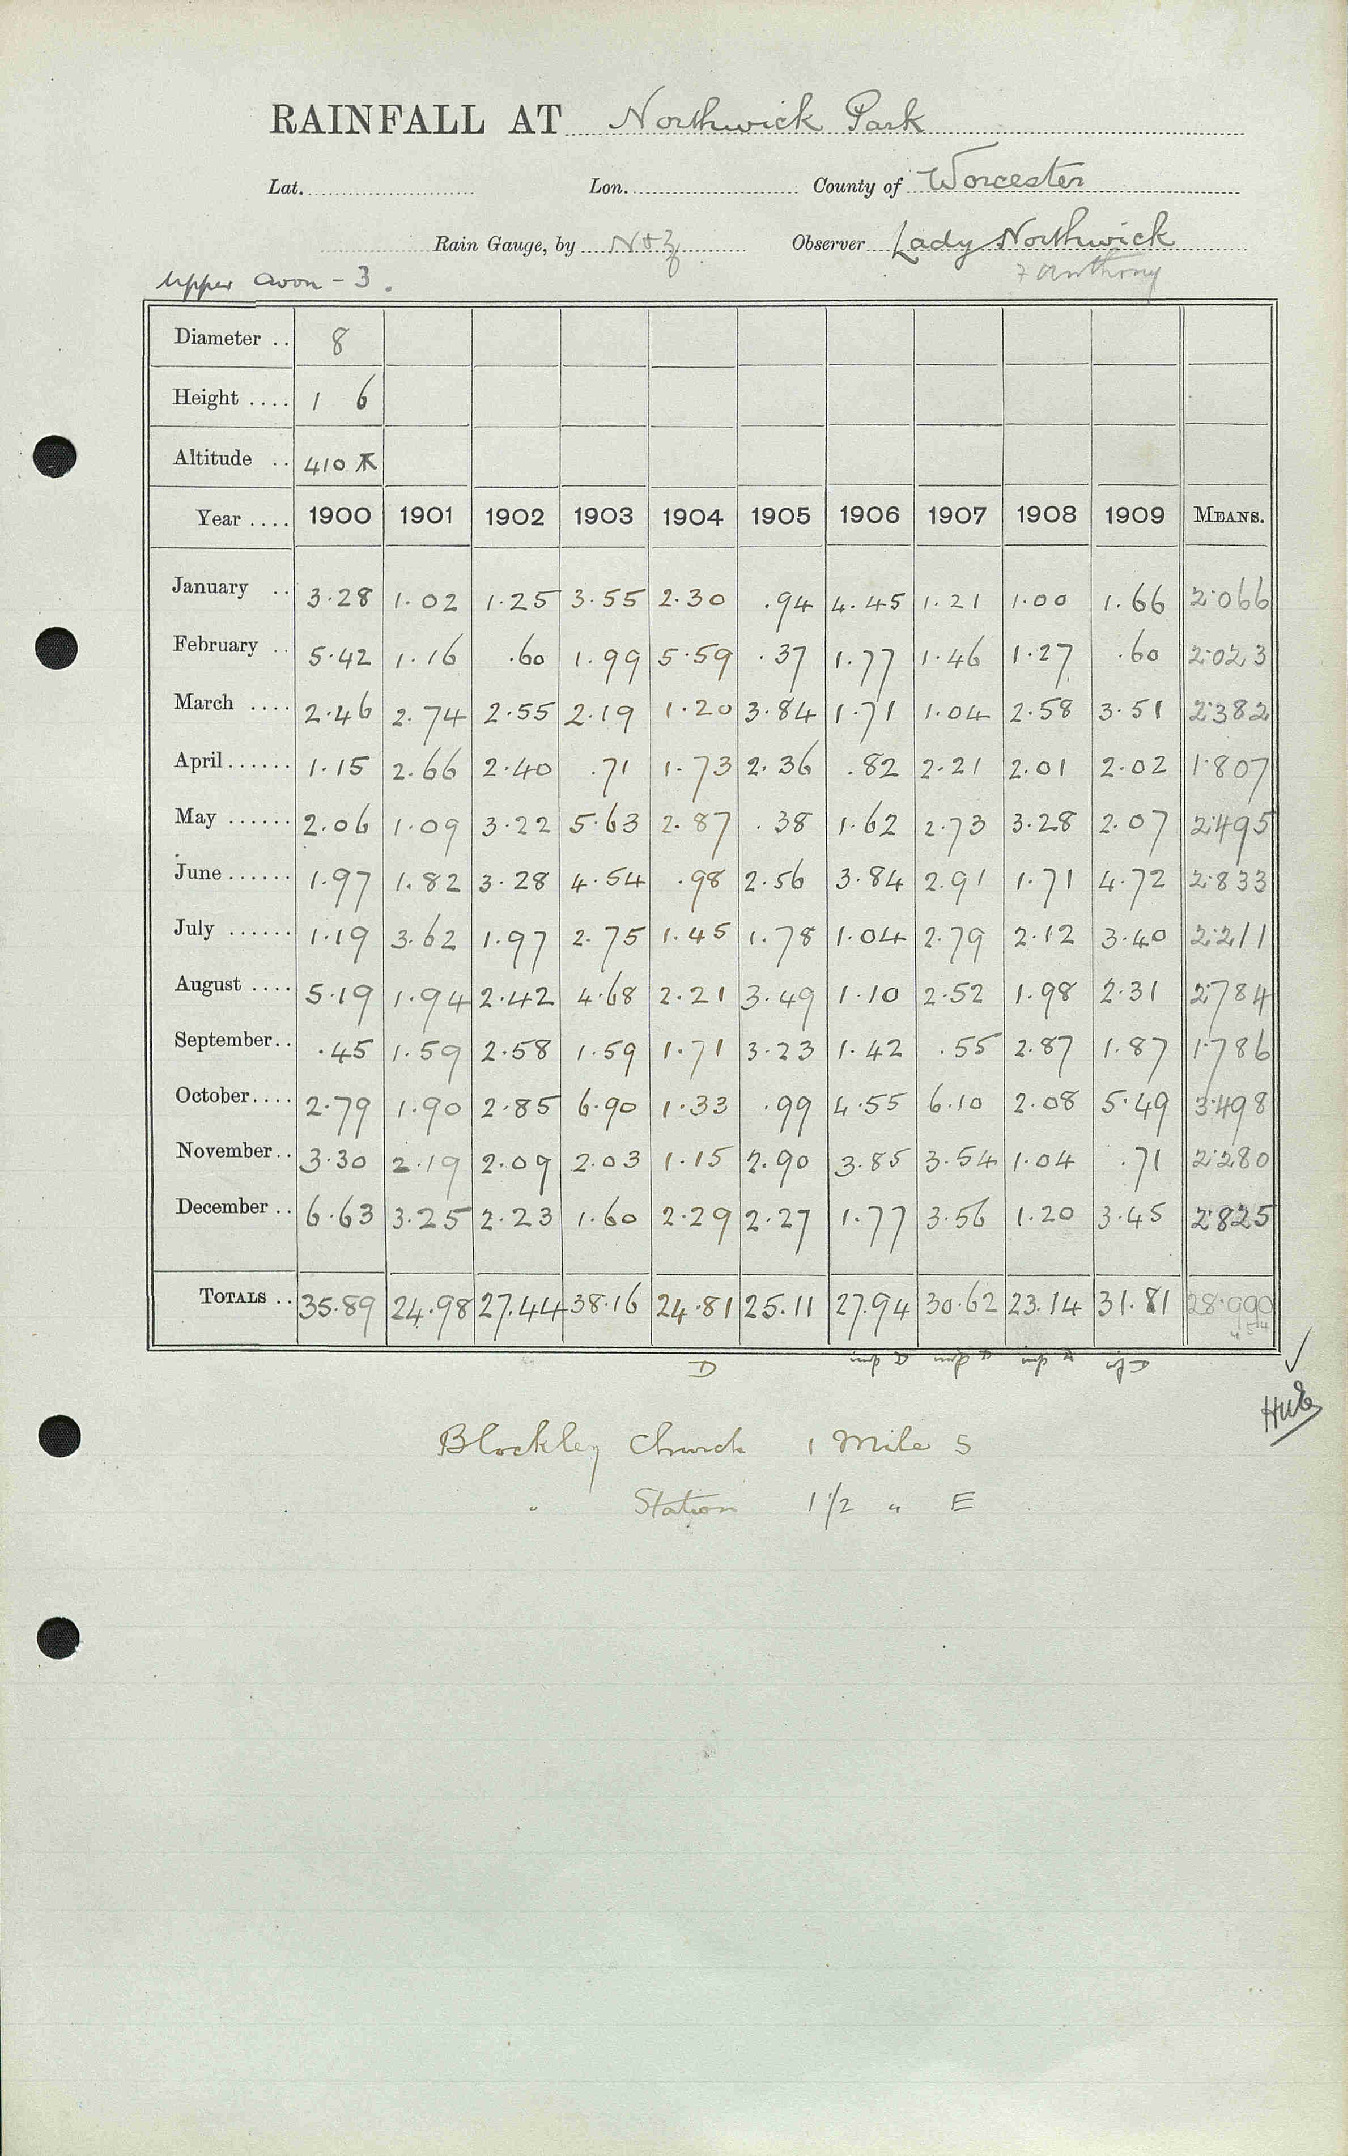 RAINFALL AT Northwick Park
Lat. Lon. County of Worcester
Rain Gauge, by N & Z Observer Lady Northwick
Upper Avon - 3. Anthony
Diameter .. 8
Height .... 1 6
Altitude .. 410
Year .... 1900 1901 1902 1903 1904 1905 1906 1907 1908 1909 MEANS.
January .. 3.28 1.02 1.25 3.55 2.30 .94 4.45 1.21 1.00 1.66 2.066
February .. 5.42 1.16 .60 1.99 5.59 .37 1.77 1.46 1.27 .60 2.023
March .... 2.46 2.74 2.55 2.19 1.20 3.84 1.71 1.04 2.58 3.51 2.382
April...... 1.15 2.66 2.40 .71 1.73 2.36 .82 2.21 2.01 2.02 1.807
May ...... 2.06 1.09 3.22 5.63 2.87 .38 1.62 2.73 3.28 2.07 2.495
June...... 1.97 1.82 3.28 4.54 .98 2.56 3.84 2.91 1.71 4.72 2.833
July ...... 1.19 3.62 1.97 2.75 1.45 1.78 1.04 2.79 2.12 3.40 2.211
August .... 5.19 1.94 2.42 4.68 2.21 3.49 1.10 2.52 1.98 2.31 2.784
September.. .45 1.59 2.58 1.59 1.71 3.23 1.42 .55 2.87 1.87 1.786
October.... 2.79 1.90 2.85 6.90 1.33 .99 4.55 6.10 2.08 5.49 3.498
November.. 3.30 2.19 2.09 2.03 1.15 2.90 3.85 3.54 1.04 .71 2.280
December .. 6.63 3.25 2.23 1.60 2.29 2.27 1.77 3.56 1.20 3.45 2.825
TOTALS .. 35.89 24.98 27.44 38.16 24.81 25.11 27.94 30.62 23.14 31.81 28.990
D
Blockley Church 1 Mile S
" Station 1 1/2 " E